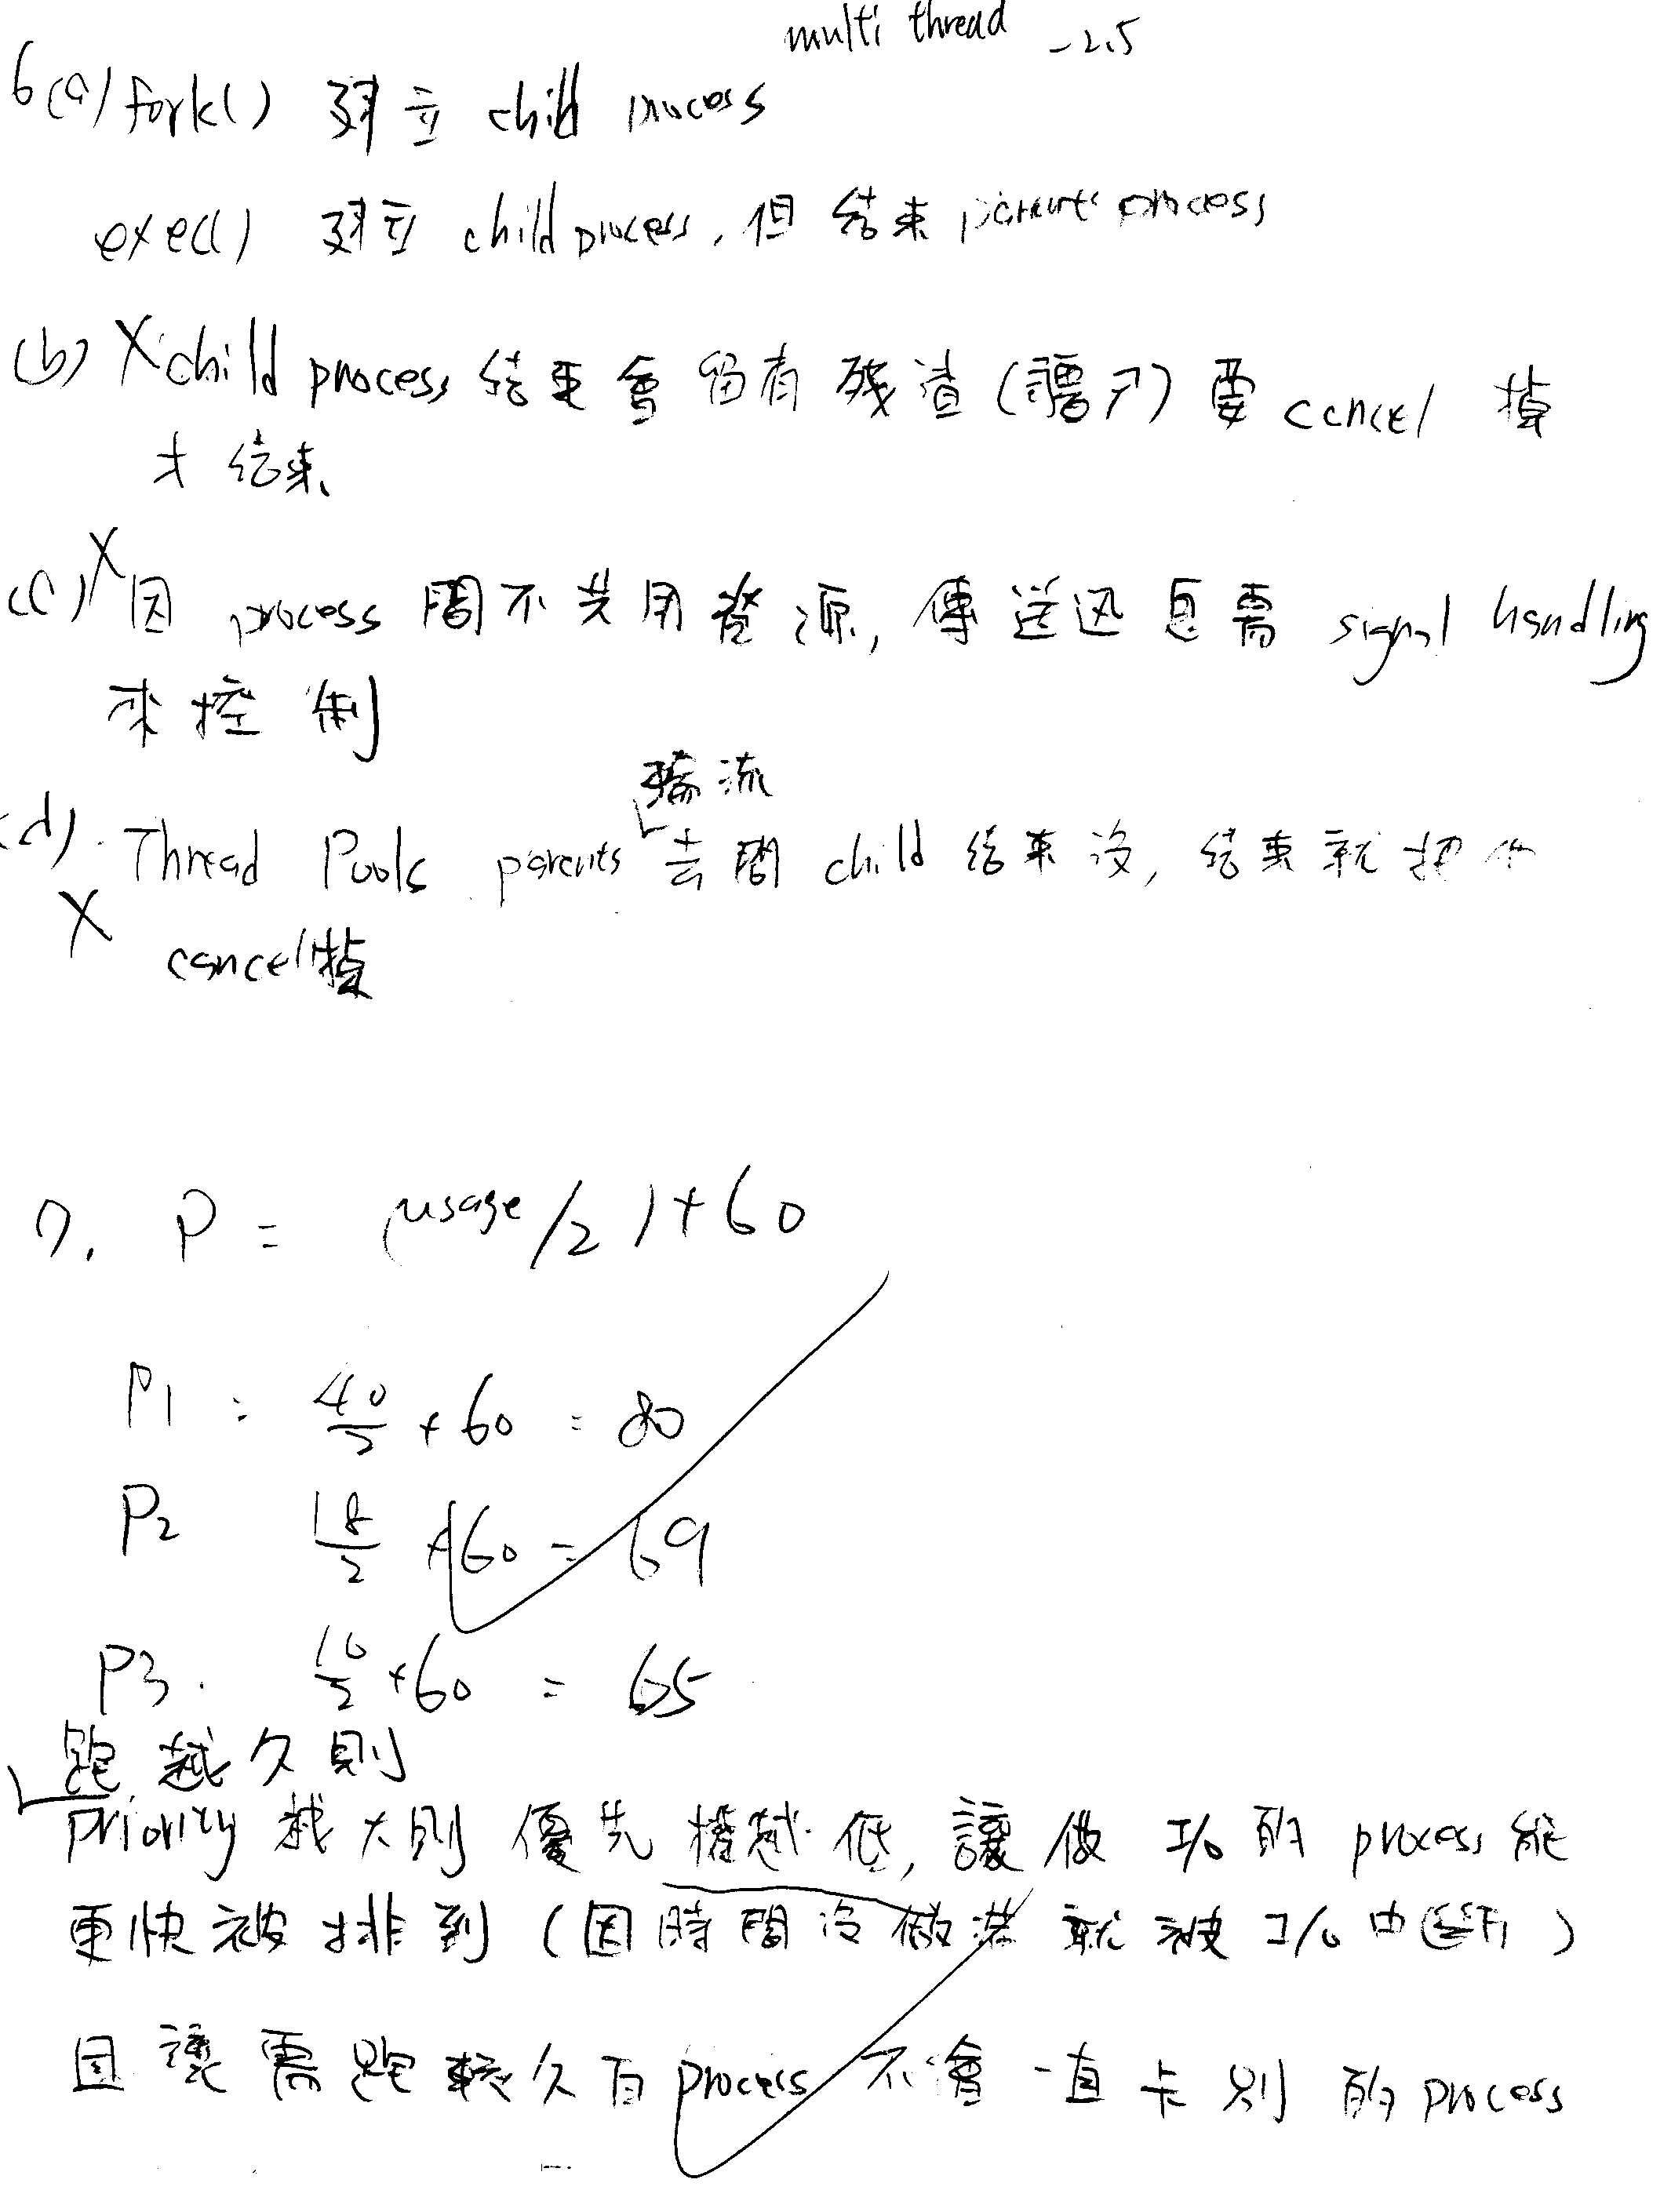 multi thread -2.5
6(a) fork() 建立 child process
exec() 建立 child process, 但結束 parents process
(b) X child process 結束會留有殘渣 (殭尸) 要 cancel 掉
才結束
(c) X 因 process 間不共用資源, 傳送迅息需 signal handling
來控制
輪流
(d). Thread Pools parents 去問 child 結束沒, 結束就把
X cancel掉
7. P = (usage/2)+60
P1 : 40/2 + 60 = 80
P2 18/2 + 60 = 69
P3. 10/2 + 60 = 65
跑越久則
priority 越大則優先權越低, 讓做 I/O 的 process 能
更快被排到 (因時間沒做滿就被 I/O 中断)
且讓需跑較久的 process 不會一直卡別的 process